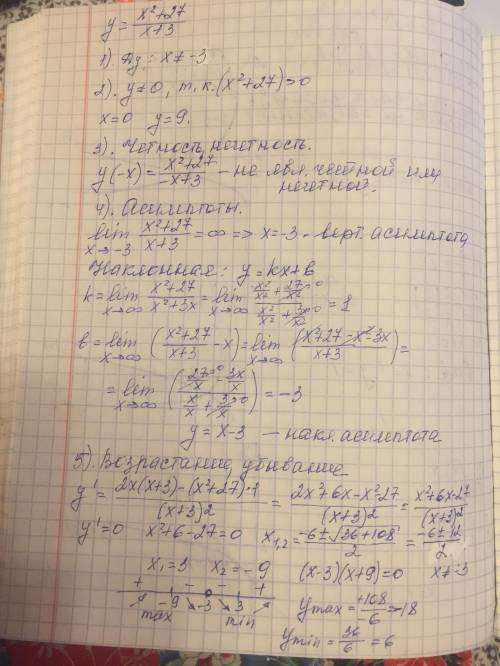 y = (x²+27)/(x+3)
1). Dy: x≠-3
2). y≠0, т.к. (x²+27)>0
x=0 y=9.
3). Четность, нечетность.
y(-x) = (x²+27)/(-x+3) - не явл. четной или нечетной.
4). Асимптоты.
lim x→-3 (x²+27)/(x+3) = ∞ => x=-3 - верт. асимптота
Наклонная: y=kx+b
k = lim x→∞ (x²+27)/(x²+3x) = lim x→∞ (x²/x² + 27/x²→0)/(x²/x² + 3x/x²→0) = 1
b = lim x→∞ ((x²+27)/(x+3) - x) = lim x→∞ ((x²+27-x²-3x)/(x+3)) =
= lim x→∞ ((27/x→0 - 3x/x)/(x/x + 3/x→0)) = -3
y = x-3 - накл. асимптота
5). Возрастание, убывание
y' = (2x(x+3)-(x²+27)·1)/(x+3)² = (2x²+6x-x²-27)/(x+3)² = (x²+6x-27)/(x+3)²
y'=0 x²+6-27=0 x1,2 = (-6±√(36+108))/2 = (-6±12)/2
x1=3 x2=-9 (x-3)(x+9)=0 x≠-3
+ - - +
-9 -3 3
max min
ymax = +108/-6 = -18
ymin = 36/6 = 6